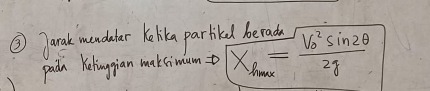 ③ Jarak mendatar ketika partikel berada
pada ketinggian maksimum ⇒ X_hmax = V₀² sin2θ / 2g
)